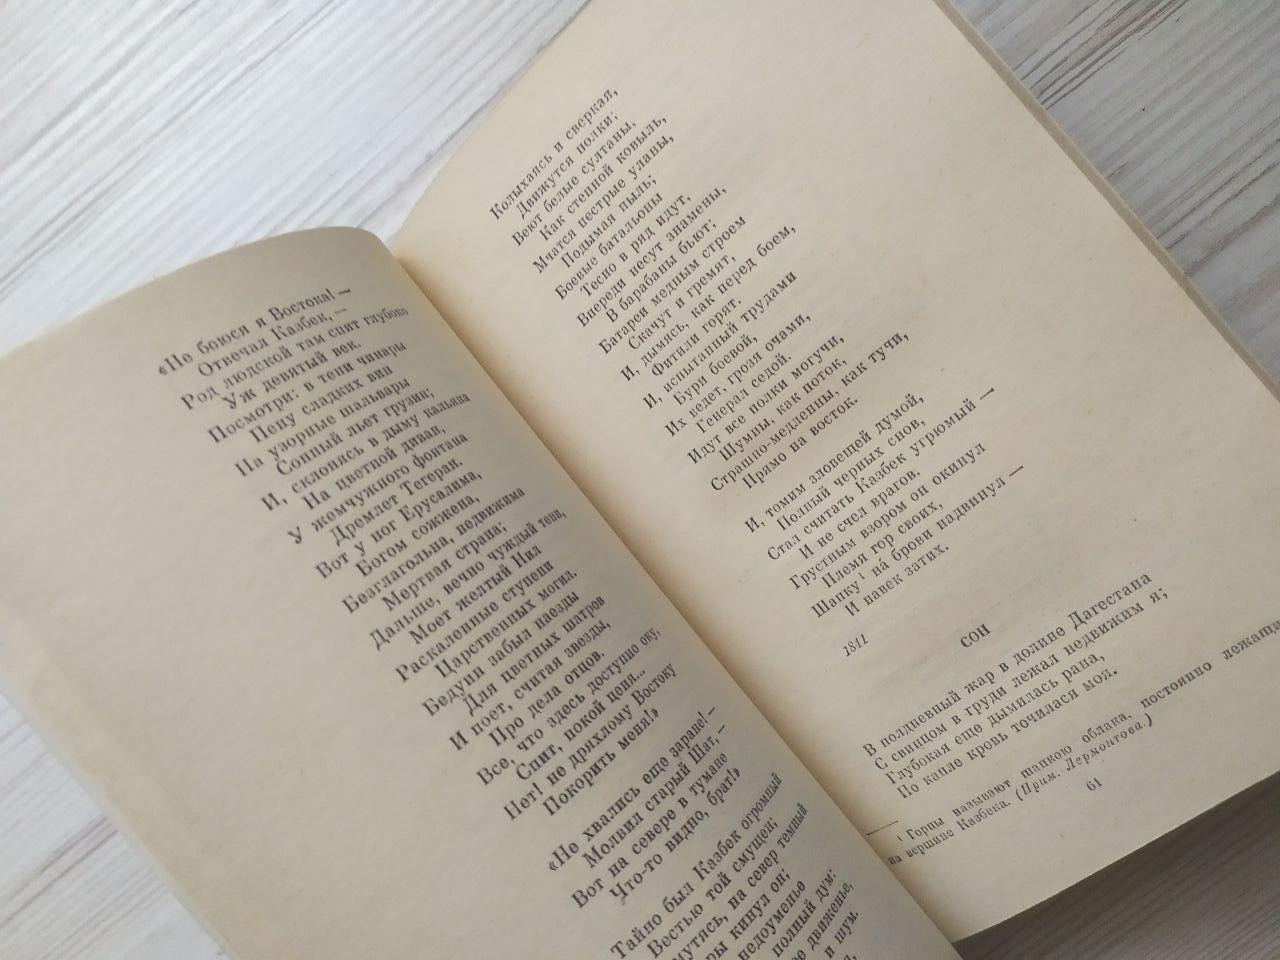 «Не боюся я Востока! —
Отвечал Казбек, —
Род людской там спит глубоко
Уж девятый век.
Посмотри: в тени чинары
Пену сладких вин
На узорные шальвары
Сонный льет грузин;
И, склонясь в дыму кальяна
На цветной диван,
У жемчужного фонтана
Дремлет Тегеран.
Вот у ног Ерусалима,
Богом сожжена,
Безглагольна, недвижима
Мертвая страна;
Дальше, вечно чуждый тени,
Моет желтый Нил
Раскаленные ступени
Царственных могил.
Бедуин забыл наезды
Для цветных шатров
И поет, считая звезды,
Про дела отцов.
Все, что здесь доступно оку,
Спит, покой ценя...
Нет! не дряхлому Востоку
Покорить меня!»
«Не хвались еще заране! —
Молвил старый Шат, —
Вот на севере в тумане
Что-то видно, брат!»
Тайно был Казбек огромный
Вестью той смущен;
мутясь, на север темный
ры кинул он;
недоуменье
полный дум:
движенье,
и шум.
Колыхаясь и сверкая,
Движутся полки;
Веют белые султаны,
Как степной ковыль,
Мчатся пестрые уланы,
Подымая пыль;
Боевые батальоны
Тесно в ряд идут,
Впереди несут знамены,
В барабаны бьют;
Батареи медным строем
Скачут и гремят,
И, дымясь, как перед боем,
Фитили горят.
И, испытанный трудами
Бури боевой,
Их ведет, грозя очами,
Генерал седой.
Идут все полки могучи,
Шумны, как поток,
Страшно-медленны, как тучи,
Прямо на восток.
И, томим зловещей думой,
Полный черных снов,
Стал считать Казбек угрюмый —
И не счел врагов.
Грустным взором он окинул
Племя гор своих,
Шапку¹ на́ брови надвинул —
И навек затих.
1841
СОН
В полдневный жар в долине Дагестана
С свинцом в груди лежал недвижим я;
Глубокая еще дымилась рана,
По капле кровь точилася моя.
¹ Горцы называют шапкою облака, постоянно лежащие
на вершине Казбека. (Прим. Лермонтова.)
61